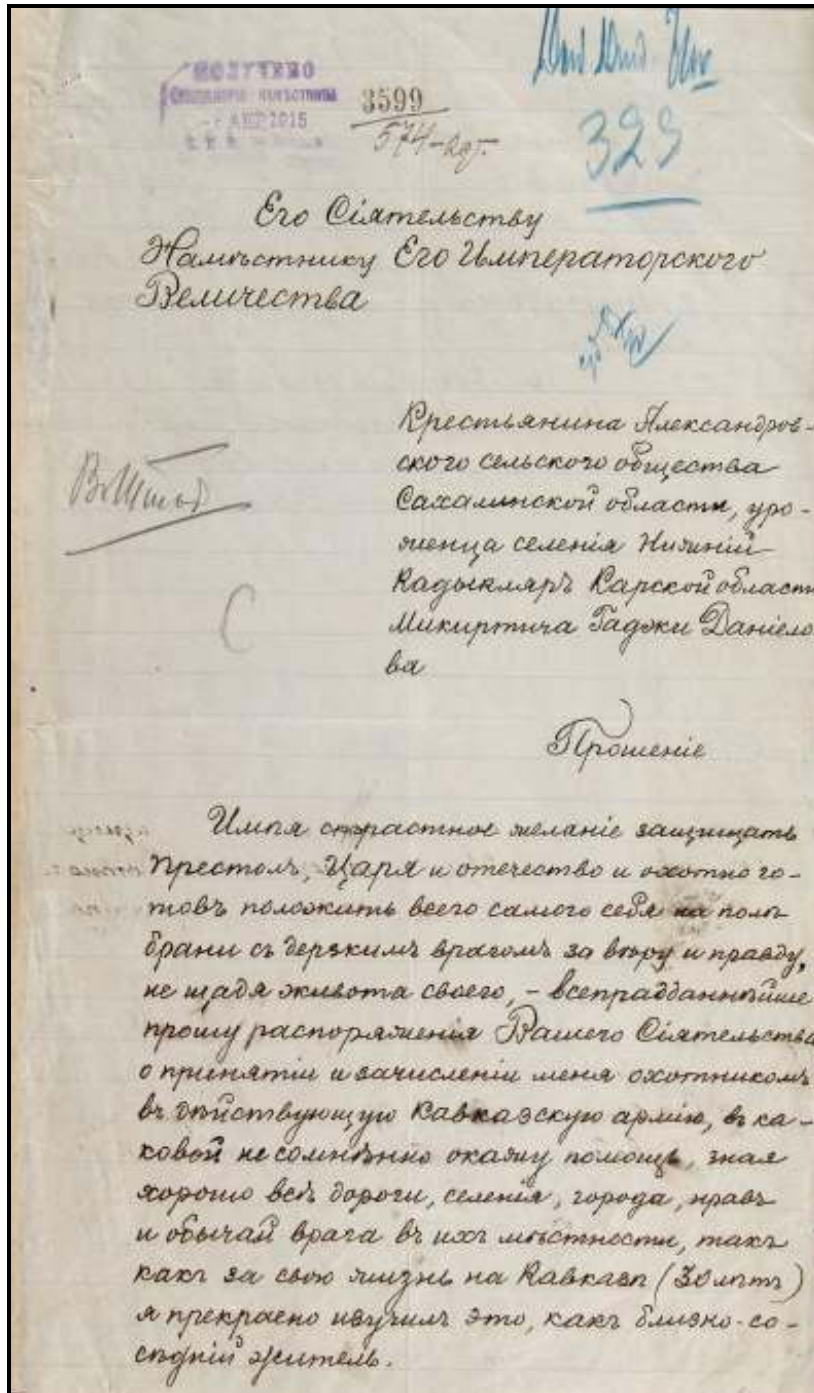 ПОЛУЧЕНО
3599
574-
329
Его Сіятельству
Намѣстнику Его Императорского
Величества
Крестьянина Александров-
ского сельского общества
Сахалинской области, уро-
женца селенія Нижній
Кадыкляръ Карской области
Микиртича Гаджи Даніело
ва
Прошеніе
Имѣя страстное желаніе защищать
Престолъ, Царя и отечество и охотно го-
товъ положить всего самого себя на полѣ
брани съ дерзкимъ врагомъ за вѣру и правду,
не щадя живота своего, - всепрадданнѣйше
прошу распоряженія Вашего Сіятельства
о принятіи и зачисленіи меня охотникомъ
въ дѣйствующую Кавказскую армію, въ ка-
ковой несомнѣнно окажу помощь, зная
хорошо всѣ дороги, селенія, города, нравъ
и обычай врага въ ихъ мѣстности, такъ
какъ за свою жизнь на Кавказѣ (30 лѣтъ)
я прекрасно изучилъ это, какъ близко-со-
сѣдній житель.